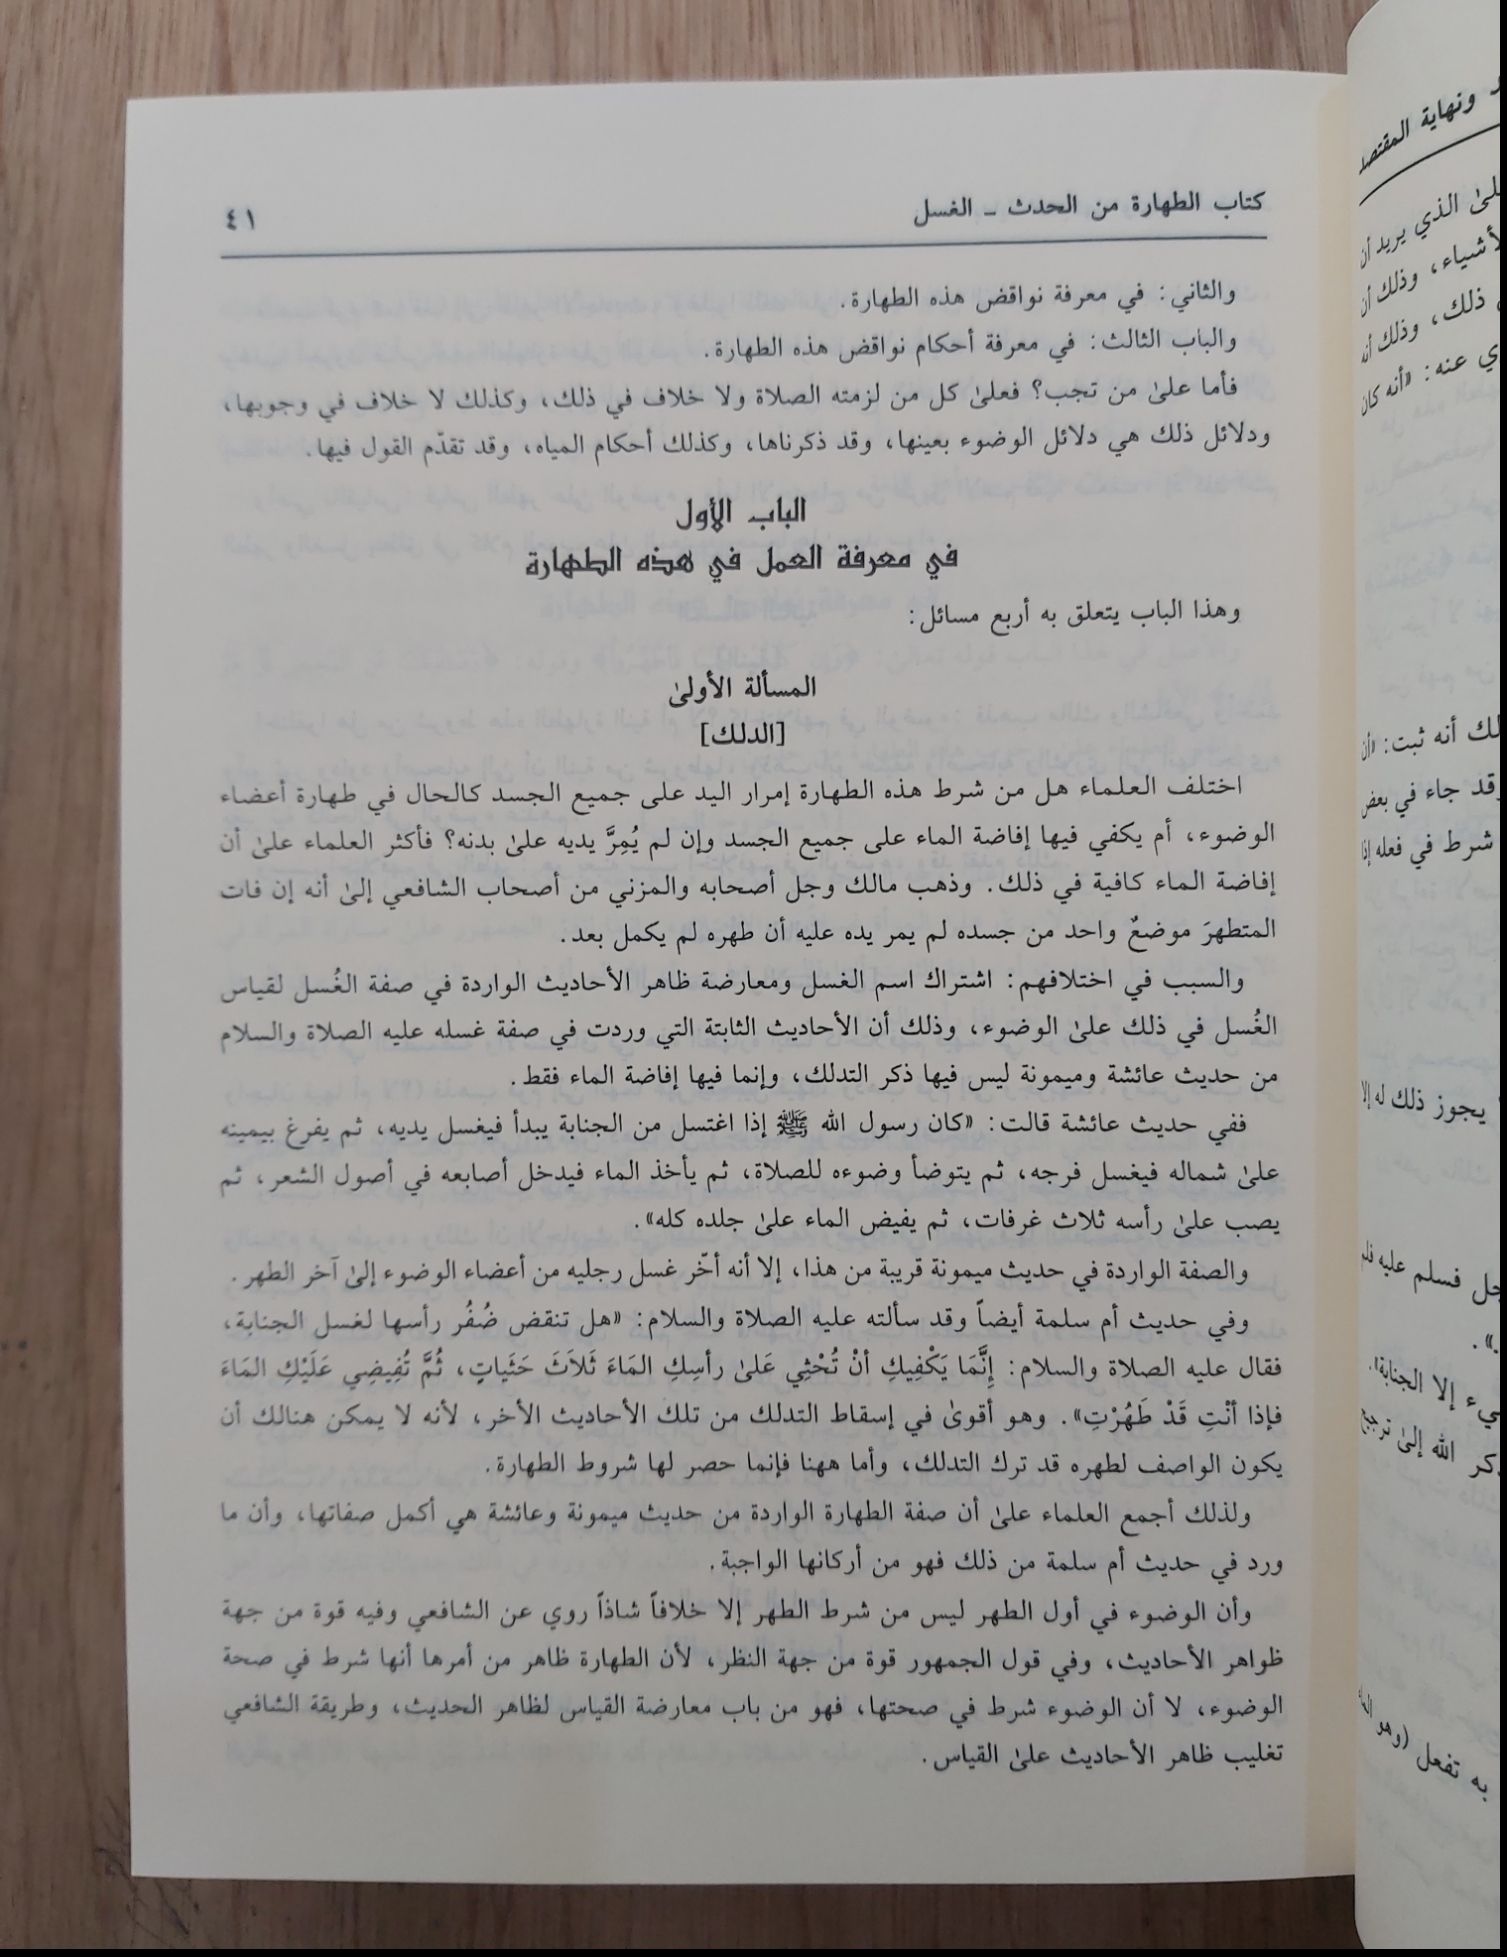 كتاب الطهارة من الحدث - الغسل
٤١
والثاني: في معرفة نواقض هذه الطهارة.
والباب الثالث: في معرفة أحكام نواقض هذه الطهارة.
فأما علىٰ من تجب؟ فعلىٰ كل من لزمته الصلاة ولا خلاف في ذلك، وكذلك لا خلاف في وجوبها،
ودلائل ذلك هي دلائل الوضوء بعينها، وقد ذكرناها، وكذلك أحكام المياه، وقد تقدّم القول فيها.
الباب الأول
في معرفة العمل في هذه الطهارة
وهذا الباب يتعلق به أربع مسائل:
المسألة الأولىٰ
[الدلك]
اختلف العلماء هل من شرط هذه الطهارة إمرار اليد على جميع الجسد كالحال في طهارة أعضاء
الوضوء، أم يكفي فيها إفاضة الماء على جميع الجسد وإن لم يُمِرَّ يديه علىٰ بدنه؟ فأكثر العلماء علىٰ أن
إفاضة الماء كافية في ذلك. وذهب مالك وجل أصحابه والمزني من أصحاب الشافعي إلىٰ أنه إن فات
المتطهرَ موضعٌ واحد من جسده لم يمر يده عليه أن طهره لم يكمل بعد.
والسبب في اختلافهم: اشتراك اسم الغسل ومعارضة ظاهر الأحاديث الواردة في صفة الغُسل لقياس
الغُسل في ذلك علىٰ الوضوء، وذلك أن الأحاديث الثابتة التي وردت في صفة غسله عليه الصلاة والسلام
من حديث عائشة وميمونة ليس فيها ذكر التدلك، وإنما فيها إفاضة الماء فقط.
ففي حديث عائشة قالت: «كان رسول الله ﷺ إذا اغتسل من الجنابة يبدأ فيغسل يديه، ثم يفرغ بيمينه
علىٰ شماله فيغسل فرجه، ثم يتوضأ وضوءه للصلاة، ثم يأخذ الماء فيدخل أصابعه في أصول الشعر، ثم
يصب علىٰ رأسه ثلاث غرفات، ثم يفيض الماء علىٰ جلده كله».
والصفة الواردة في حديث ميمونة قريبة من هذا، إلا أنه أخّر غسل رجليه من أعضاء الوضوء إلىٰ آخر الطهر.
وفي حديث أم سلمة أيضاً وقد سألته عليه الصلاة والسلام: «هل تنقض ضُفُر رأسها لغسل الجنابة،
فقال عليه الصلاة والسلام: إِنَّمَا يَكْفِيكِ أنْ تُحْثِي عَلىٰ رأسِكِ المَاءَ ثَلاَثَ حَثَياتٍ، ثُمَّ تُفِيضِي عَلَيْكِ المَاءَ
فإذا أنْتِ قَدْ طَهُرْتِ». وهو أقوىٰ في إسقاط التدلك من تلك الأحاديث الأخر، لأنه لا يمكن هنالك أن
يكون الواصف لطهره قد ترك التدلك، وأما ههنا فإنما حصر لها شروط الطهارة.
ولذلك أجمع العلماء علىٰ أن صفة الطهارة الواردة من حديث ميمونة وعائشة هي أكمل صفاتها، وأن ما
ورد في حديث أم سلمة من ذلك فهو من أركانها الواجبة.
وأن الوضوء في أول الطهر ليس من شرط الطهر إلا خلافاً شاذاً روي عن الشافعي وفيه قوة من جهة
ظواهر الأحاديث، وفي قول الجمهور قوة من جهة النظر، لأن الطهارة ظاهر من أمرها أنها شرط في صحة
الوضوء، لا أن الوضوء شرط في صحتها، فهو من باب معارضة القياس لظاهر الحديث، وطريقة الشافعي
تغليب ظاهر الأحاديث علىٰ القياس.
ونهاية المقتصد
الذي يريد أن
وذلك أن
ذلك، وذلك أنه
عنه: «أنه كان
أنه ثبت: «أن
وقد جاء في بعض
شرط في فعله إذا
يجوز ذلك له إلا
فسلم عليه فلم
إلا الجنابة».
الله إلىٰ ترجيح
به تفعل (وهو